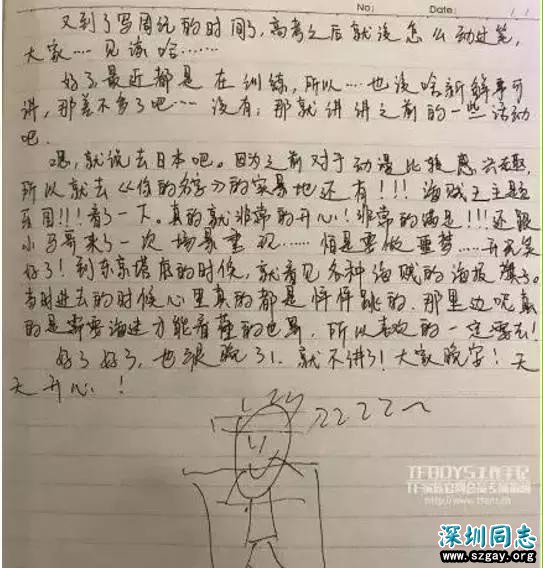 No:
Date:
又到了写周记的时间了,高考之后就没怎么动过笔,
大家…… 见谅哈……
好了,最近都是在训练,所以…… 也没啥新鲜事可
讲,那差不多了吧~~~ 没有,那就讲讲之前的一些活动
吧.
嗯,就说去日本吧。因为之前对于动漫比较感兴趣,
所以就去《你的名字》的实景地还有!!! 海贼王主题
乐园!!!看了一下。真的就非常的开心!非常的满足!!!还跟
小马哥来了一次场景重现…… 怕是要做噩梦…… 开玩笑
好了!到东京塔底的时候,就看见各种海贼的海报旗子。
当时进去的时候心里真的都是怦怦跳的,那里边呢真
的是需要海迷才能看懂的世界,所以喜欢的一定要去!
好了好了,也很晚了!就不讲了!大家晚安!天
天开心!
ZZZZ~
TFBOYS工作手记
深圳同志
www.szgay.org